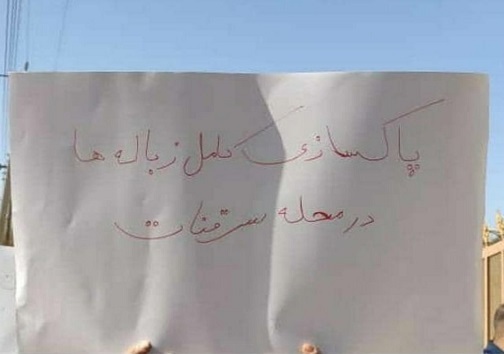 پاکسازی کامل زباله ها
در محله سرقنات